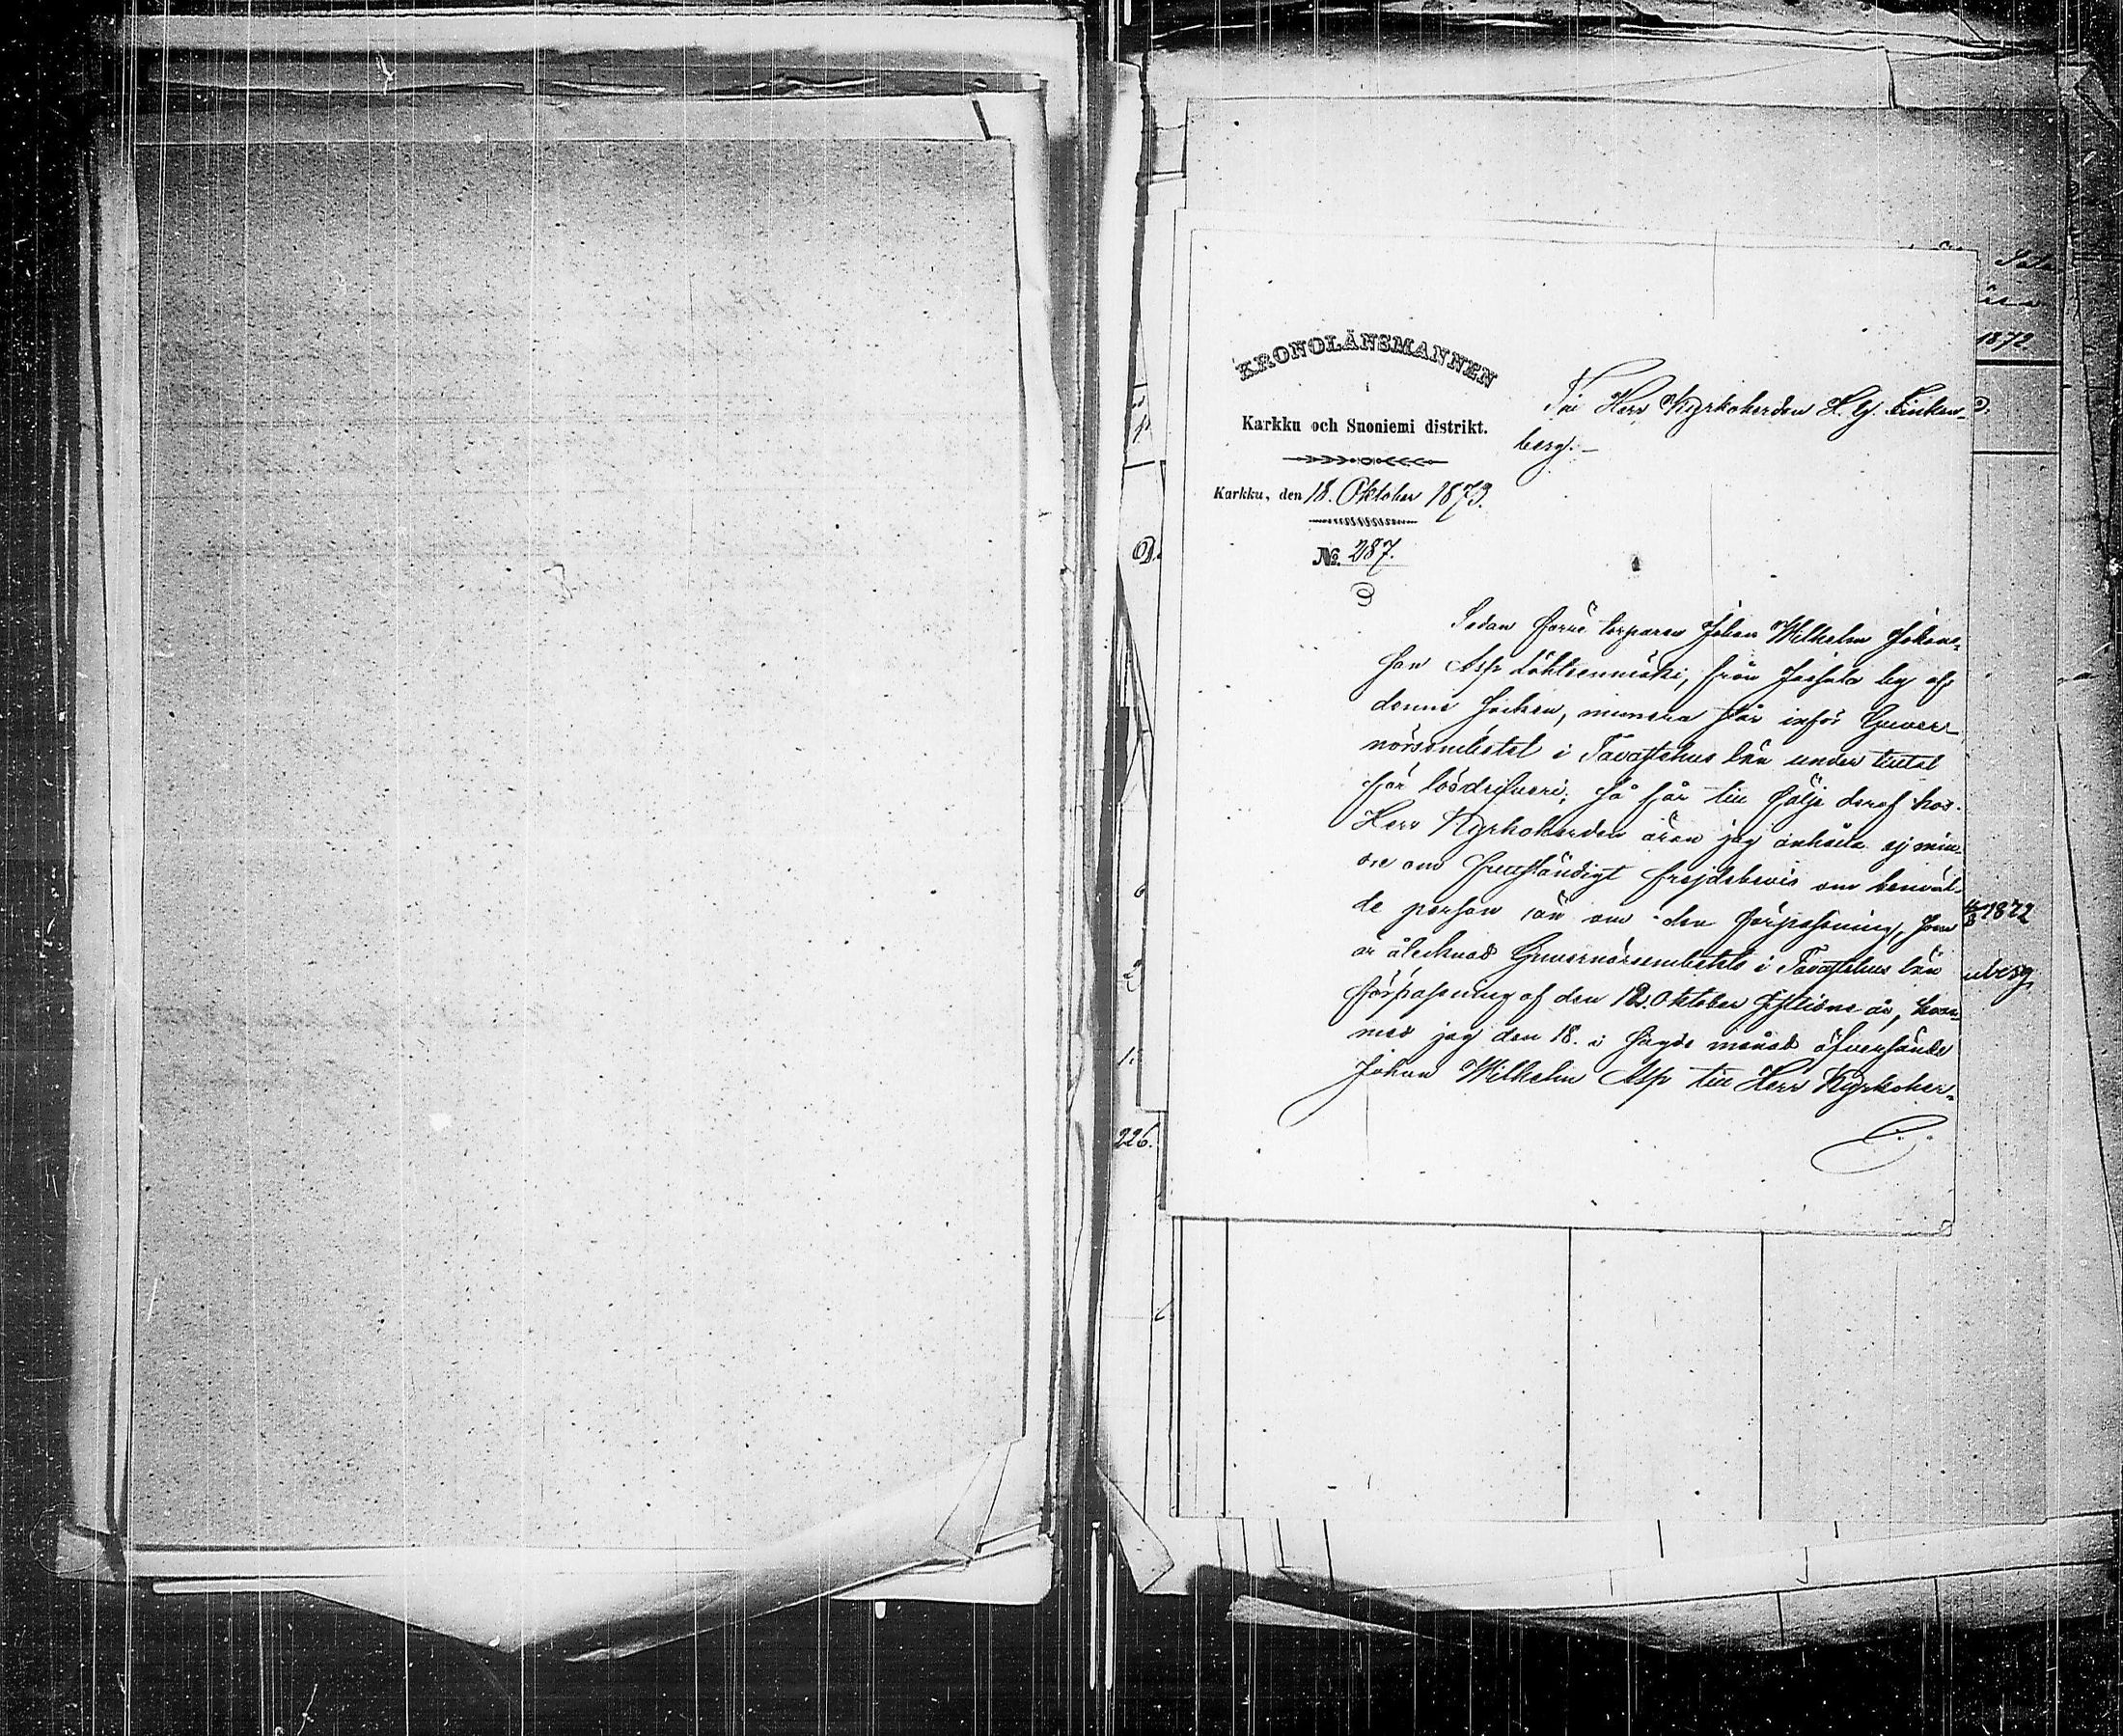 KRONOLÄNSMANNEN
i
Karkku och Suoniemi distrikt.
Karkku, den 18. Oktober 1873.
№ 287.
Till Herr Kyrkoherden H. G. Finken-
berg.-
Sedan förre torparen Johan Wilhelm Johans-
son Asp från by af
denna socken, numera står inför Guver-
nörsembetet i Tavastehus län under tilltal
för lösdrifveri; så får till följe deraf hos
Herr Kyrkoherden äran jag anhålla ej min-
dre om fullständigt frejdebevis om benäm-
de person än om den förpassning, som
är åtecknad Guvernörsembetets i Tavastehus län
förpassning af den 12. Oktober sistlidne år, hvar-
med jag den 18. i sagde månad öfversände
Johan Wilhelm Asp till Herr Kyrkoher-
1872
1872
nberg
226.